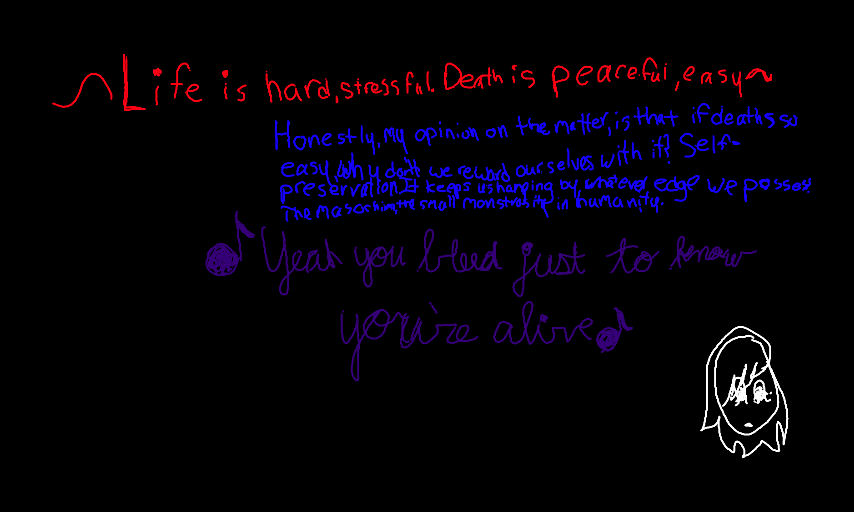 Life is hard, stressful. Death is peaceful, easy~
Honestly, My opinion on the matter, is that if death's so
easy, Why don't we reward ourselves with it? Self-
preservation. It keeps us hanging by whatever edge we possess
The small monstrosity in humanity.
Yeah you bleed just to know
you're alive